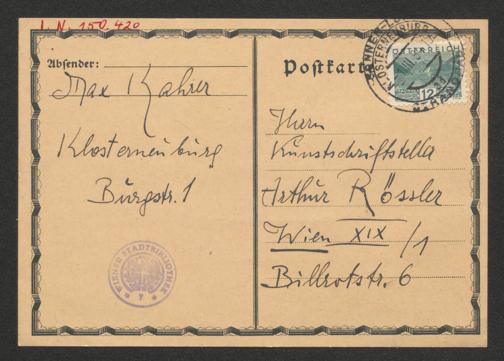 I. N. 150.420
Absender:
Max Kahrer
Klosterneuburg
Burgstr. 1
WIENER STADTBIBLIOTHEK
Postkarte
ÖSTERREICH
12
Herrn
Kunstschriftstella
Arthur Rössler
Wien XIX /1
Billrotstr. 6